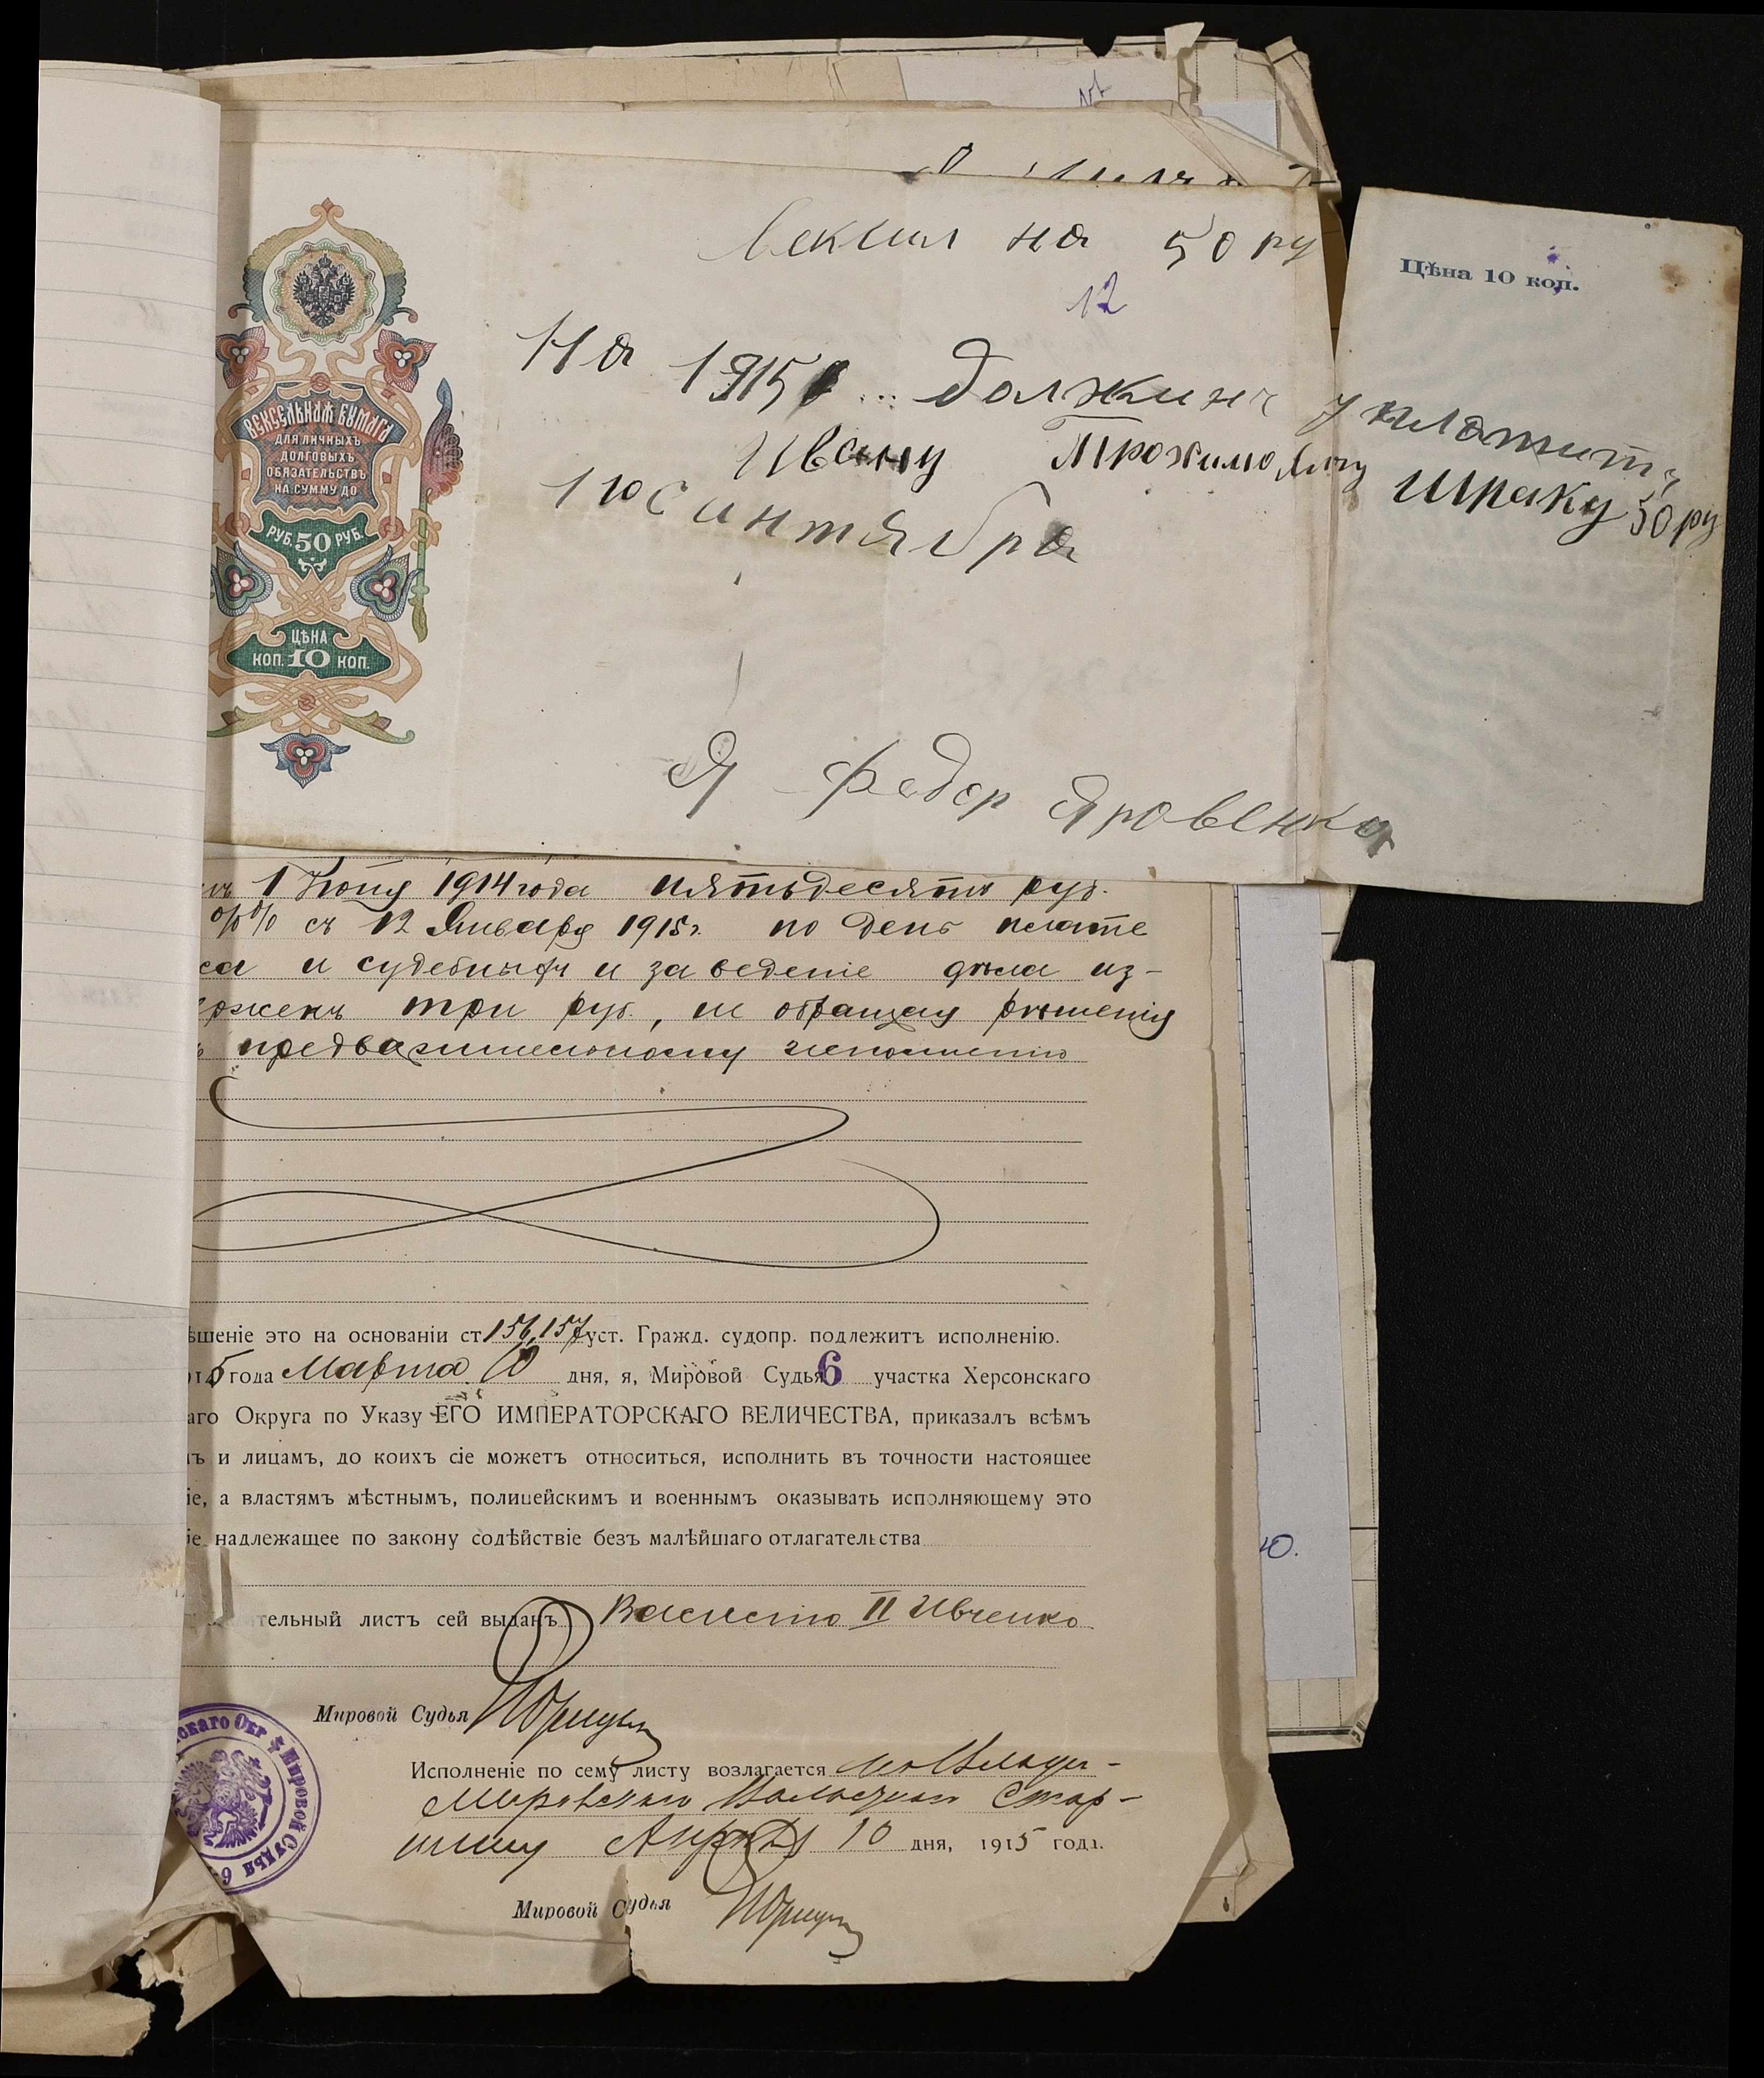 Вексил на 50 ру
12
Цѣна 10 коп.
На 1915 должинъ уплатить
Ивану Трохимовичу Шпаку 50 ру
1го сантября
Я Федор Яровенко
ВЕКСЕЛЬНАЯ БУМАГА
ДЛЯ ЛИЧНЫХЪ
ДОЛГОВЫХЪ
ОБЯЗАТЕЛЬСТВЪ
НА СУММУ ДО
РУБ. 50 РУБ.
ЦѢНА
КОП. 10 КОП.
1914 года пятьдесятъ руб.
%% съ 12 Января 1915 г. по день плате
и судебныхъ и за веденіе дѣла из-
держекъ три руб., и обращаю рѣшеніе
предварительному исполненію
ѣшеніе это на основаніи ст 156, 157 уст. Гражд. судопр. подлежитъ исполненію.
915 года Марта 10 дня, я, Мировой Судья 6 участка Херсонскаго
аго Округа по Указу ЕГО ИМПЕРАТОРСКАГО ВЕЛИЧЕСТВА, приказалъ всѣмъ
ъ и лицамъ, до коихъ сіе можетъ относиться, исполнить въ точности настоящее
іе, а властямъ мѣстнымъ, полицейскимъ и военнымъ оказывать исполняющему это
іе надлежащее по закону содѣйствіе безъ малѣйшаго отлагательства
тельный листъ сей выданъ Василію II Ивченко
Мировой Судья
Исполненіе по сему листу возлагается на Влади-
мировскаго Волостного Стар-
шину Апрѣля 10 дня, 1915 года.
Мировой Судья
скаго Окр Мировой Судья 6
ю.